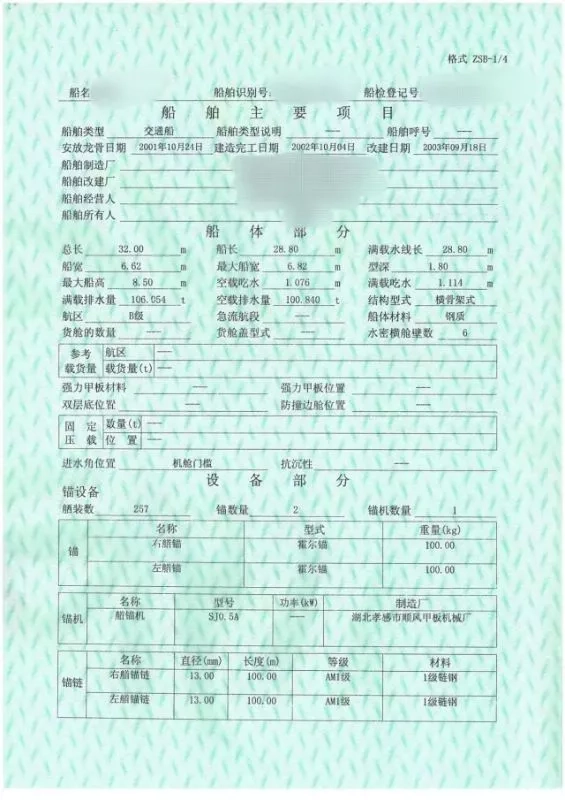 格式 ZSB-1/4
船名 船舶识别号: 船检登记号:
船舶主要项目
船舶类型 交通船 船舶类型说明 --- 船舶呼号 ---
安放龙骨日期 2001年10月24日 建造完工日期 2002年10月04日 改建日期 2003年09月18日
船舶制造厂
船舶改建厂
船舶经营人
船舶所有人
船体部分
总长 32.00 m 船长 28.80 m 满载水线长 28.80 m
船宽 6.62 m 最大船宽 6.82 m 型深 1.80 m
最大船高 8.50 m 空载吃水 1.076 m 满载吃水 1.114 m
满载排水量 106.054 t 空载排水量 100.840 t 结构型式 横骨架式
航区 B级 急流航段 --- 船体材料 钢质
货舱的数量 --- 货舱盖型式 --- 水密横舱壁数 6
参考 航区 ---
载货量 载货量(t) ---
强力甲板材料 --- 强力甲板位置 ---
双层底位置 --- 防撞边舱位置 ---
固定 数量(t) ---
压载 位置 ---
进水角位置 机舱门槛 抗沉性 ---
设备部分
锚设备
舾装数 257 锚数量 2 锚机数量 1
名称 型式 重量(kg)
锚 右艏锚 霍尔锚 100.00
左艏锚 霍尔锚 100.00
名称 型号 功率(kW) 制造厂
锚机 艏锚机 SJ0.5A --- 湖北孝感市顺风甲板机械厂
名称 直径(mm) 长度(m) 等级 材料
锚链 右艏锚链 13.00 100.00 AM1级 1级链钢
左艏锚链 13.00 100.00 AM1级 1级链钢